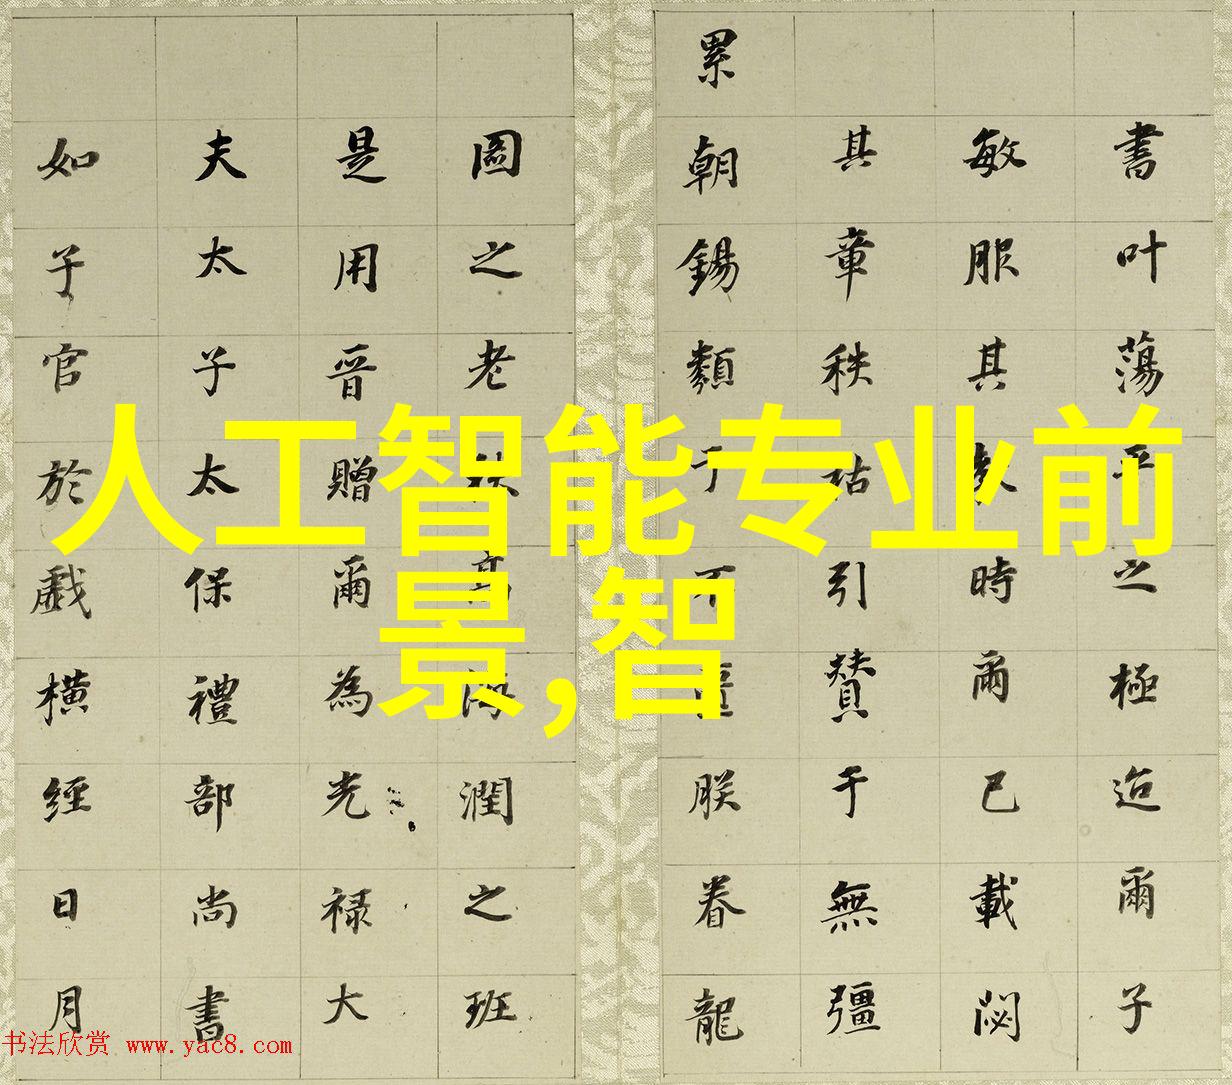 書叶蕩平之極迨爾子
敏服其時爾已載閟
其章秩祜引贊于無彊
累朝錫類于不匱朕眷龍
圖之老高潤之班
是用晉贈爾為光禄大
夫太子太保禮部尚書
如子官於戲橫經日月
人工智能专业前
景,智
书法欣赏 www.yac8.com